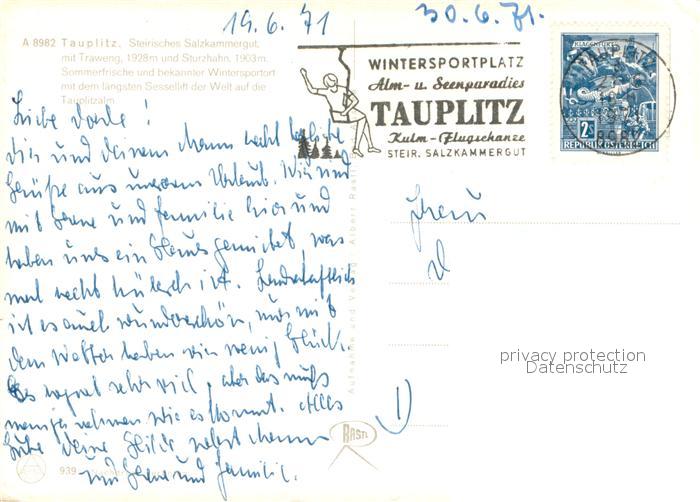 19.6.71
30.6.71.
A 8982 Tauplitz. Steirisches Salzkammergut,
mit Traweng, 1928m und Sturzhahn, 1903m.
Sommerfrische und bekannter Wintersportort
mit dem längsten Sessellift der Welt auf die
Tauplitzalm
WINTERSPORTPLATZ
Alm- u. Seenparadies
TAUPLITZ
Kulm-Flugschanze
STEIR. SALZKAMMERGUT
KLAGENFURT
2S
REPUBLIK ÖSTERREICH
Liebe Dorle!
Dir und deinem Mann recht herzliche
Grüße aus unserem Urlaub. Wir sind
mit und Familie hier und
haben uns ein Haus gemietet, was
mal recht hübsch ist. Landschaftlich
ist es auch wunderschön, nur mit
dem Wetter haben wir wenig Glück.
Es regnet sehr viel, aber das muß
man nehmen wie es kommt. Alles
Gute Deine nebst Mann
und und Familie.
Frau
Aufnahme und Verlag Albert Rastl
RASTL
939
privacy protection
Datenschutz